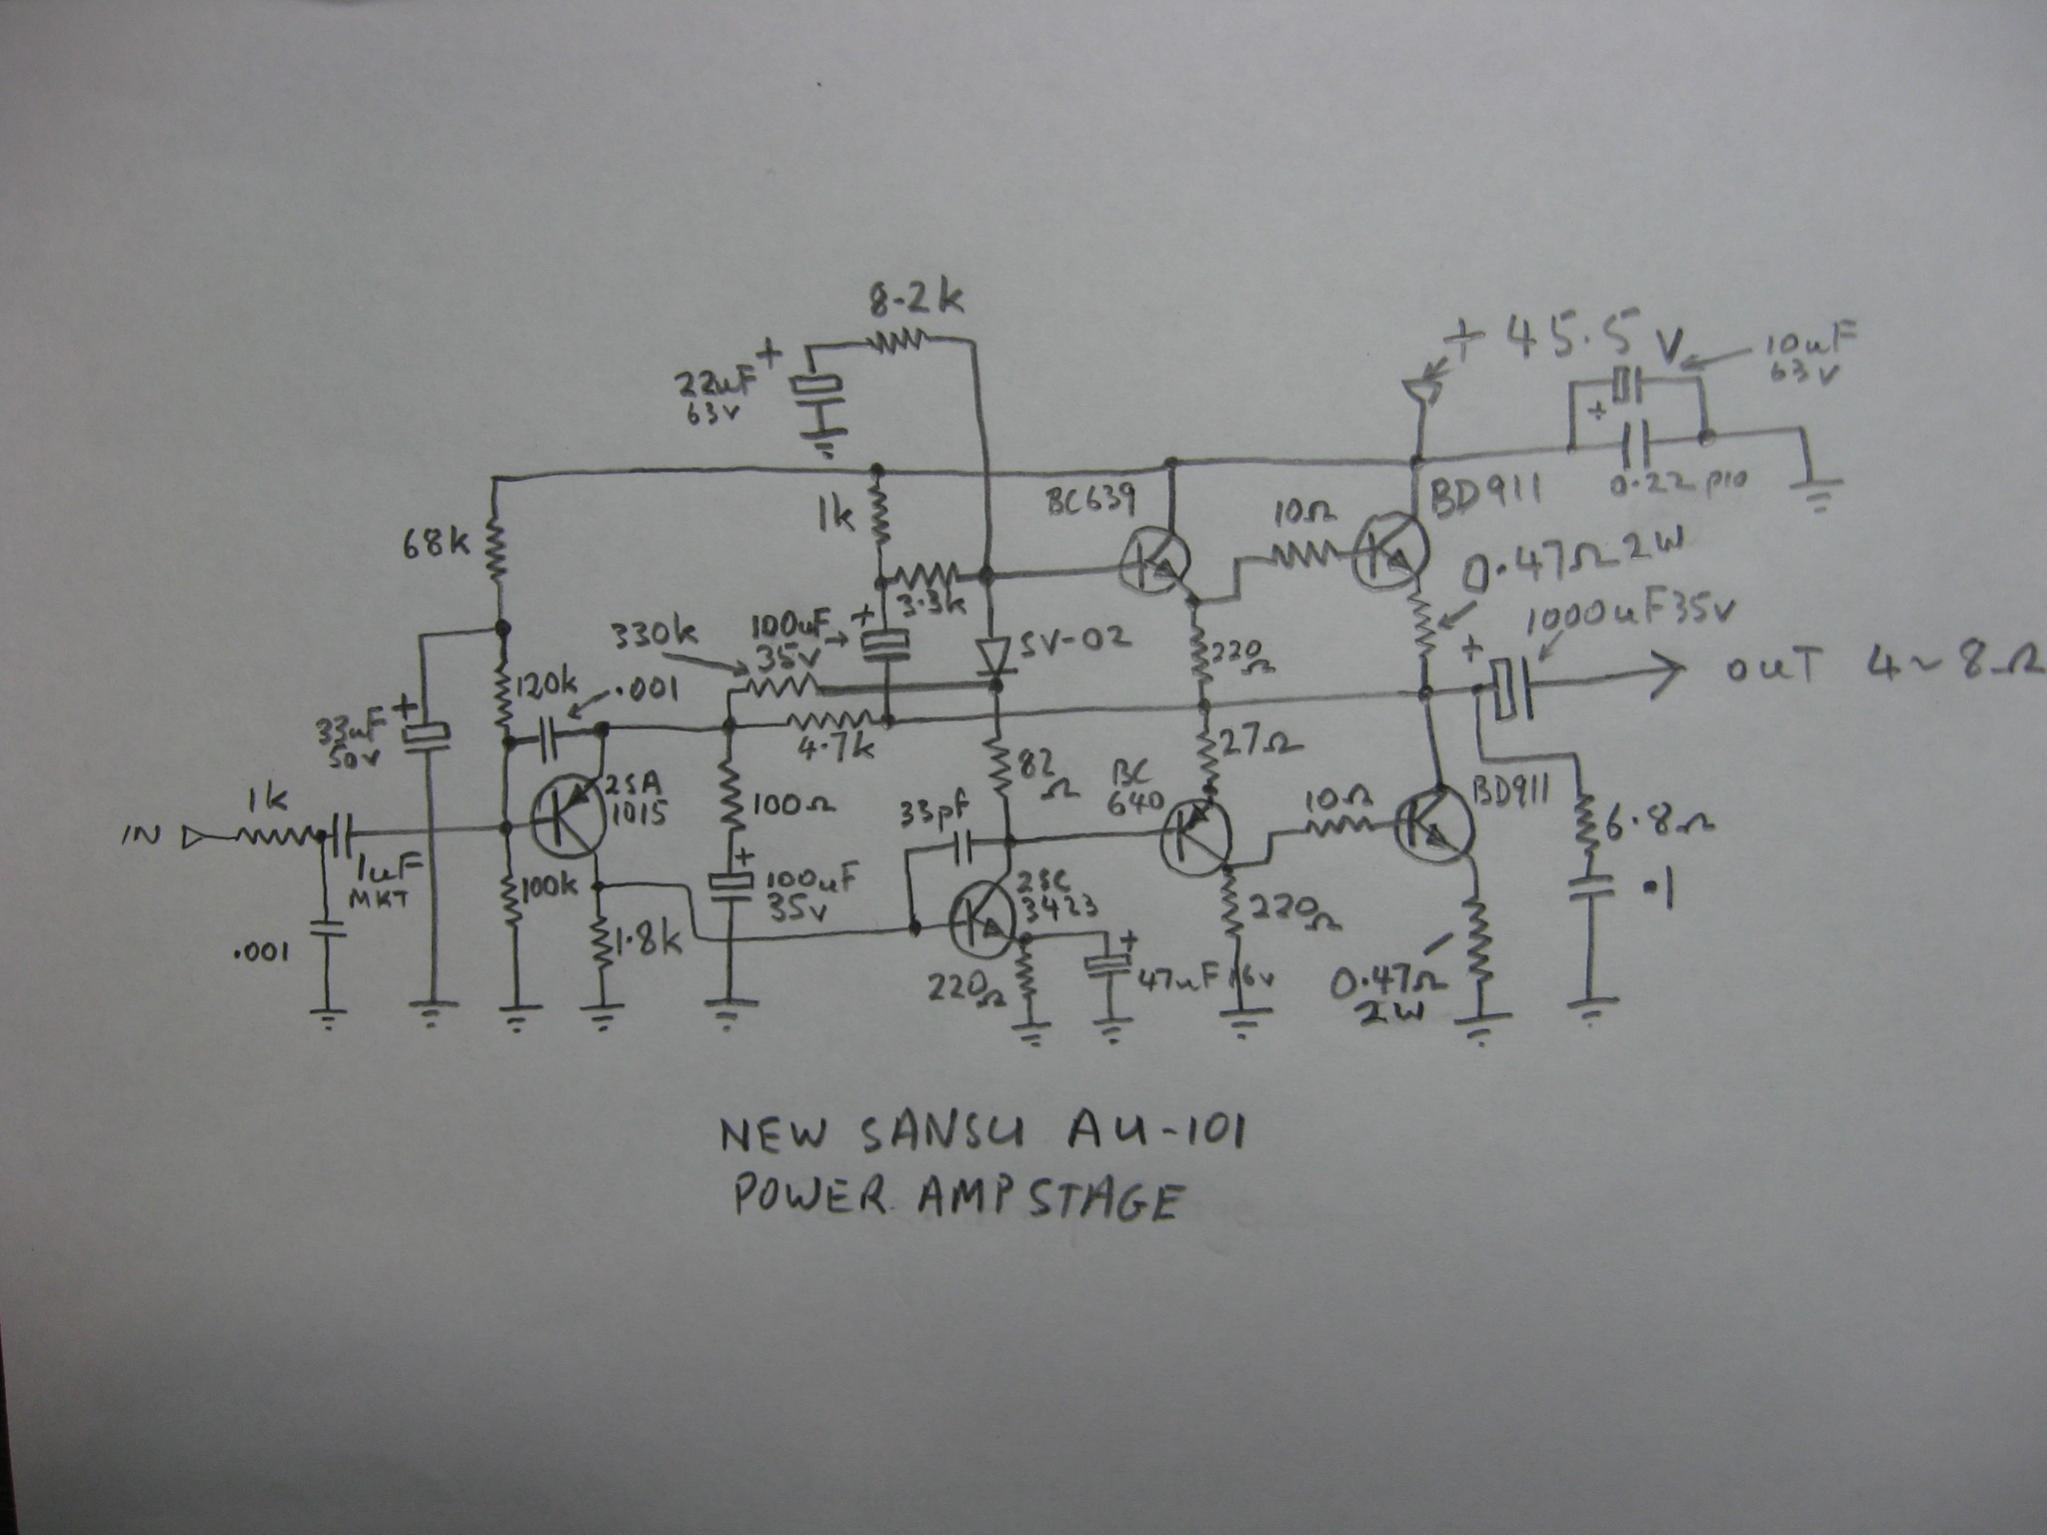 8.2k
+ 45.5 V
10uF
63v
+
22uF
63v
+
BC639
BD911
0.22 pio
68k
1k
10Ω
0.47Ω 2W
3.3k
330k
100uF
35v
+
SV-02
220Ω
+
1000uF 35v
OUT 4~8Ω
120k
.001
33uF
50v
+
4.7k
82Ω
27Ω
BC
640
BD911
1k
IN
2SA
1015
100Ω
33pf
10Ω
6.8Ω
1uF
MKT
100k
+
100uF
35v
2SC
3423
.1
.001
1.8k
220Ω
+
47uF 16v
220Ω
0.47Ω
2W
NEW SANSU AU-101
POWER AMP STAGE